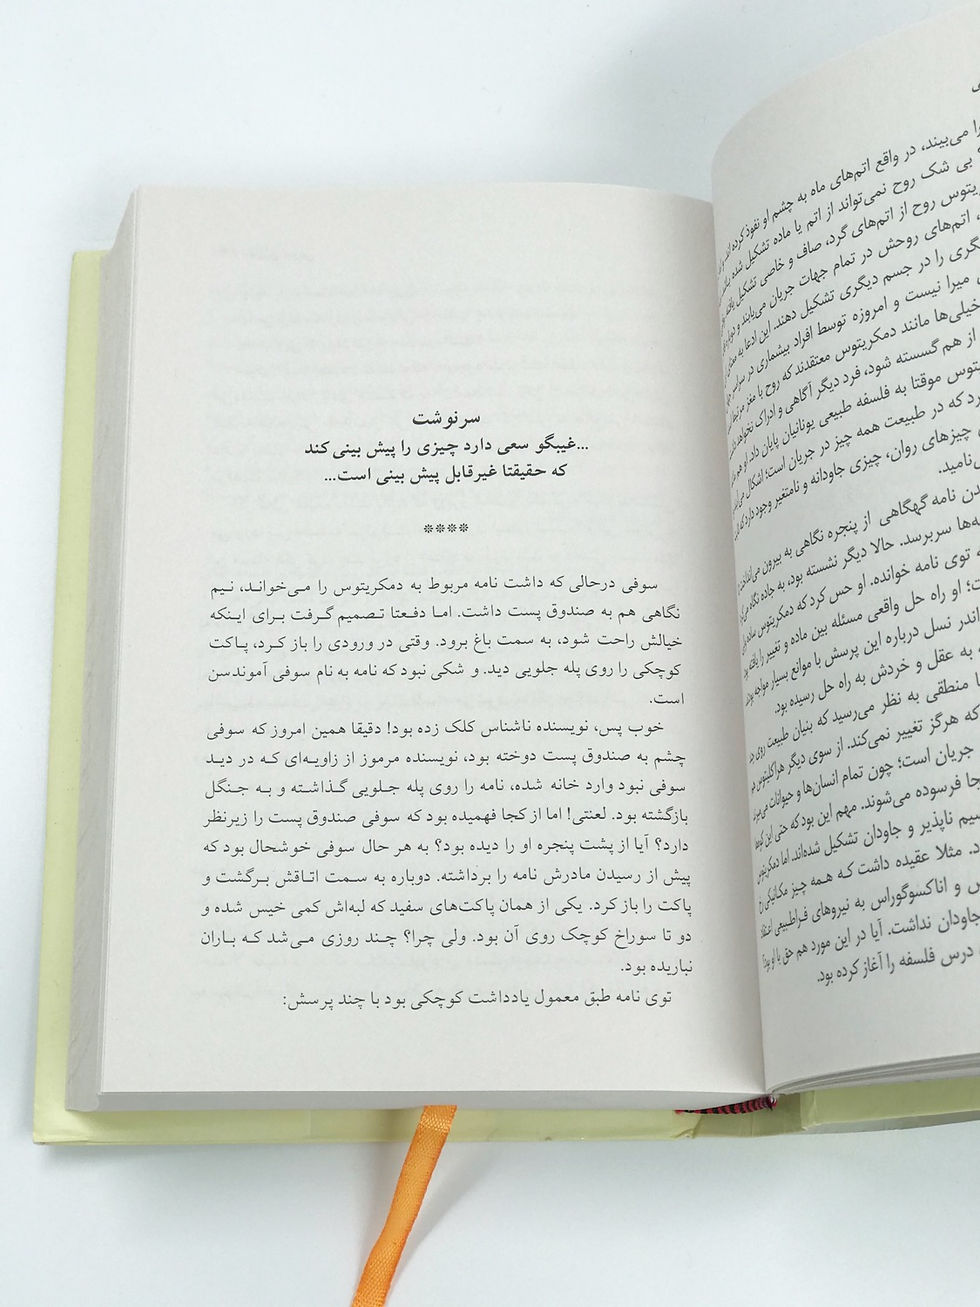 را می‌بیند، در واقع اتم‌های ماه به چشم او نفوذ کرده‌اند
بی شک روح نمی‌تواند از اتم یا ماده تشکیل شده
روح از اتم‌های گرد، صاف و خاصی تشکیل یافته
اتم‌های روحش در تمام جهات جریان می‌یابند و
را در جسم دیگری تشکیل دهند. این ادعا به
میرا نیست و امروزه توسط افراد بیشماری در سراسر
خیلی‌ها مانند دمکریتوس معتقدند که روح با مغز مرتبط است
از هم گسسته شود، فرد دیگر آگاهی و ادراک نخواهد داشت
موقتا به فلسفه طبیعی یونانیان پایان داد. او هم
که در طبیعت همه چیز در جریان است؛ اشکال می‌آیند
چیزهای روان، چیزی جاودانه و نامتغیر وجود دارد که
نامید.
نامه گهگاهی از پنجره نگاهی به بیرون می‌انداخت
سربرسد. حالا دیگر نشسته بود، به جاده نگاه می‌کرد
توی نامه خوانده. او حس کرد که دمکریتوس ساده
او راه حل واقعی مسئله بین ماده و تغییر را یافته بود
اندر نسل درباره این پرسش با موانع بسیار مواجه بودند
به عقل و خردش به راه حل رسیده بود.
منطقی به نظر می‌رسید که بنیان طبیعت روی
که هرگز تغییر نمی‌کند. از سوی دیگر هراکلیتوس هم
جریان است؛ چون تمام انسان‌ها و حیوانات می‌میرند
فرسوده می‌شوند. مهم این بود که حتی این کوه‌ها
ناپذیر و جاودان تشکیل شده‌اند. اما دمکریتوس
مثلا عقیده داشت که همه چیز مکانیکی رخ
و اناکسوگوراس به نیروهای فراطبیعی اعتقاد
جاودان نداشت. آیا در این مورد هم حق با او بود؟
درس فلسفه را آغاز کرده بود.
سرنوشت
...غیبگو سعی دارد چیزی را پیش بینی کند
که حقیقتا غیرقابل پیش بینی است...
****
سوفی درحالی که داشت نامه مربوط به دمکریتوس را می‌خواند، نیم
نگاهی هم به صندوق پست داشت. اما دفعتا تصمیم گرفت برای اینکه
خیالش راحت شود، به سمت باغ برود. وقتی در ورودی را باز کرد، پاکت
کوچکی را روی پله جلویی دید. و شکی نبود که نامه به نام سوفی آموندسن
است.
خوب پس، نویسنده ناشناس کلک زده بود! دقیقا همین امروز که سوفی
چشم به صندوق پست دوخته بود، نویسنده مرموز از زاویه‌ای که در دید
سوفی نبود وارد خانه شده، نامه را روی پله جلویی گذاشته و به جنگل
بازگشته بود. لعنتی! اما از کجا فهمیده بود که سوفی صندوق پست را زیرنظر
دارد؟ آیا از پشت پنجره او را دیده بود؟ به هر حال سوفی خوشحال بود که
پیش از رسیدن مادرش نامه را برداشته. دوباره به سمت اتاقش برگشت و
پاکت را باز کرد. یکی از همان پاکت‌های سفید که لبه‌اش کمی خیس شده و
دو تا سوراخ کوچک روی آن بود. ولی چرا؟ چند روزی می‌شد که باران
نباریده بود.
توی نامه طبق معمول یادداشت کوچکی بود با چند پرسش: